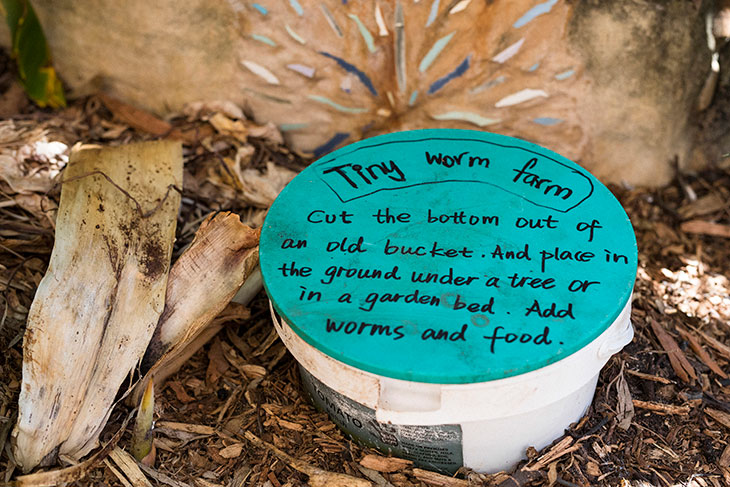 Tiny worm farm
Cut the bottom out of
an old bucket. And place in
the ground under a tree or
in a garden bed. Add
worms and food.
TOMATO